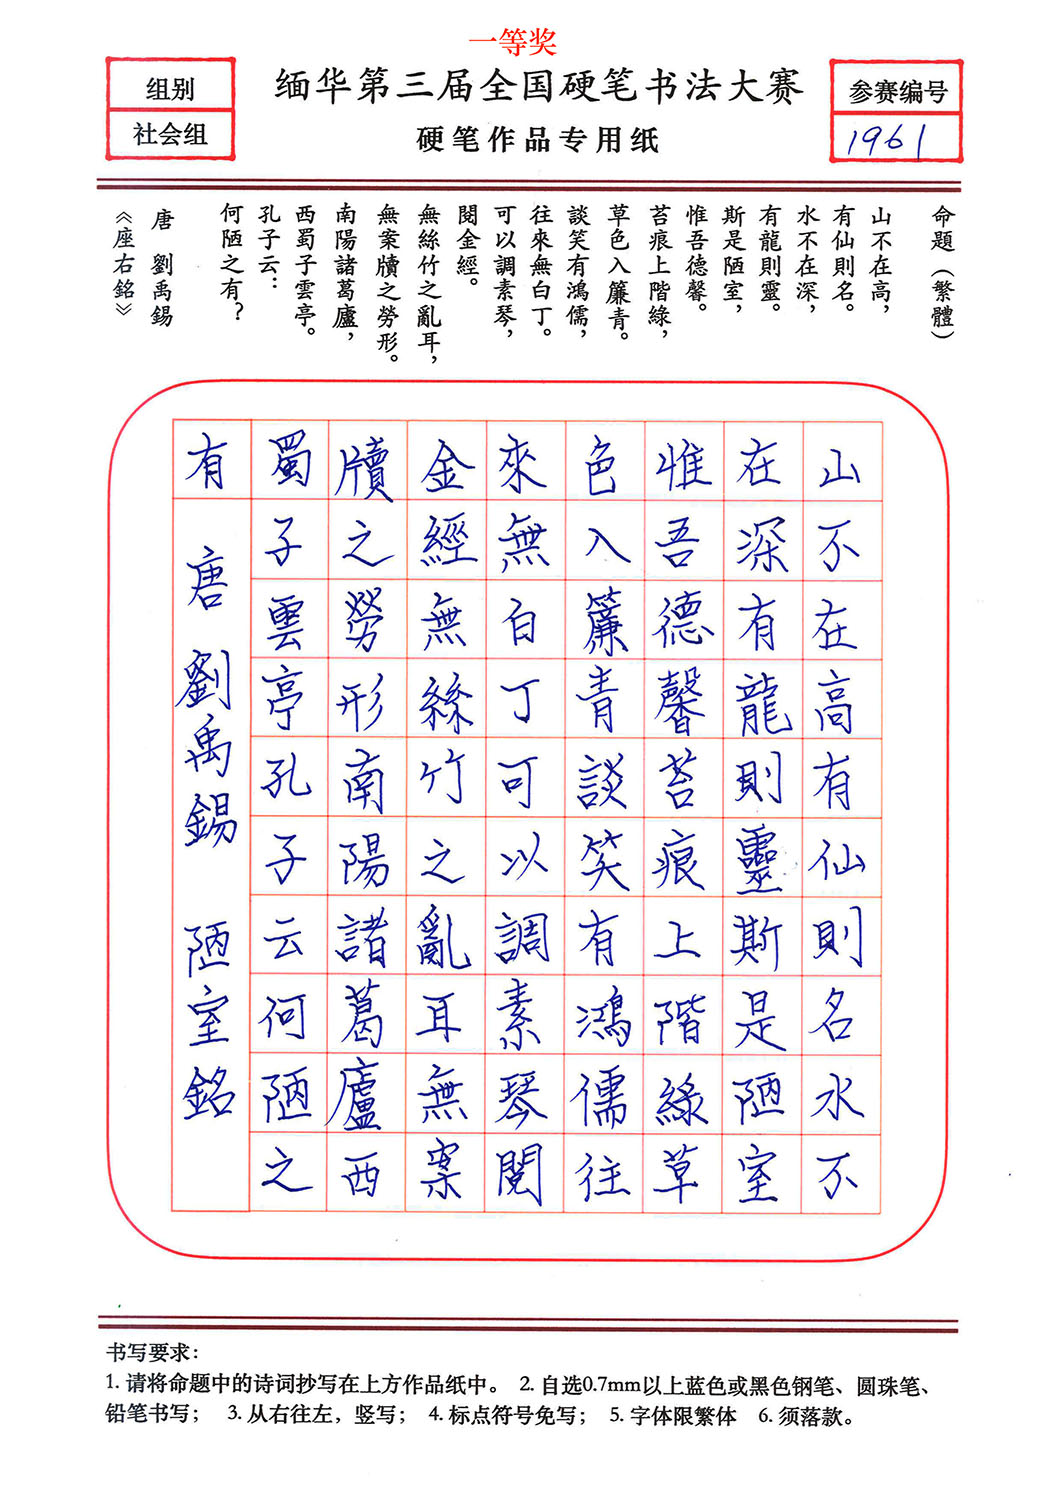 一等奖
组别
社会组
缅华第三届全国硬笔书法大赛
硬笔作品专用纸
参赛编号
1961
命題（繁體）
山不在高，
有仙則名。
水不在深，
有龍則靈。
斯是陋室，
惟吾德馨。
苔痕上階綠，
草色入簾青。
談笑有鴻儒，
往來無白丁。
可以調素琴，
閱金經。
無絲竹之亂耳，
無案牘之勞形。
南陽諸葛廬，
西蜀子雲亭。
孔子云：
何陋之有？
唐 劉禹錫
《座右銘》
山不在高有仙則名水不
在深有龍則靈斯是陋室
惟吾德馨苔痕上階綠草
色入簾青談笑有鴻儒往
來無白丁可以調素琴閱
金經無絲竹之亂耳無案
牘之勞形南陽諸葛廬西
蜀子雲亭孔子云何陋之
有 唐 劉禹錫 陋室銘
书写要求：
1. 请将命题中的诗词抄写在上方作品纸中。 2. 自选0.7mm以上蓝色或黑色钢笔、圆珠笔、
铅笔书写； 3. 从右往左，竖写； 4. 标点符号免写； 5. 字体限繁体 6. 须落款。